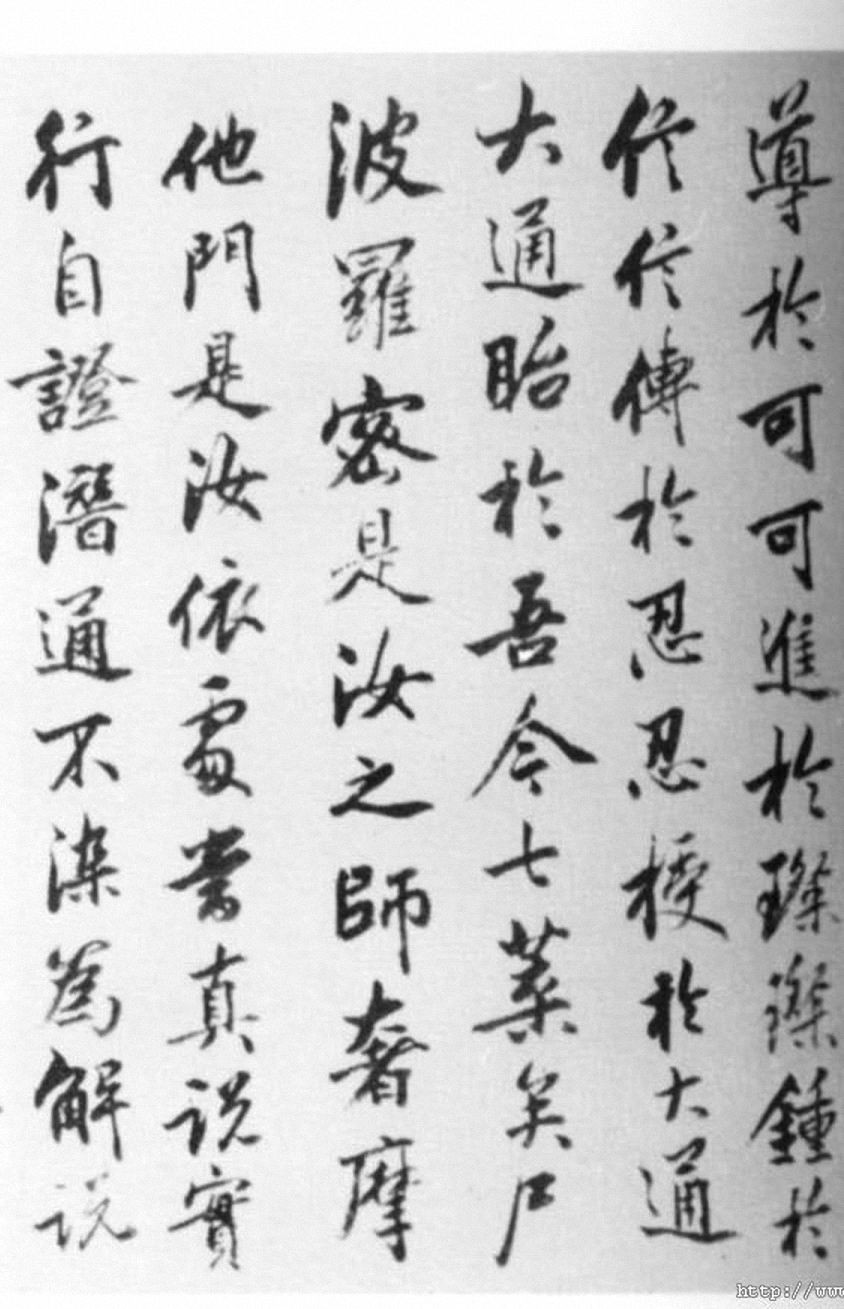 導於可可進於璨璨鍾於
信信傳於忍忍授於大通
大通貽於吾今七葉矣尸
波羅密是汝之師奢摩
他門是汝依處當真說實
行自證潛通不染為解說
http://www